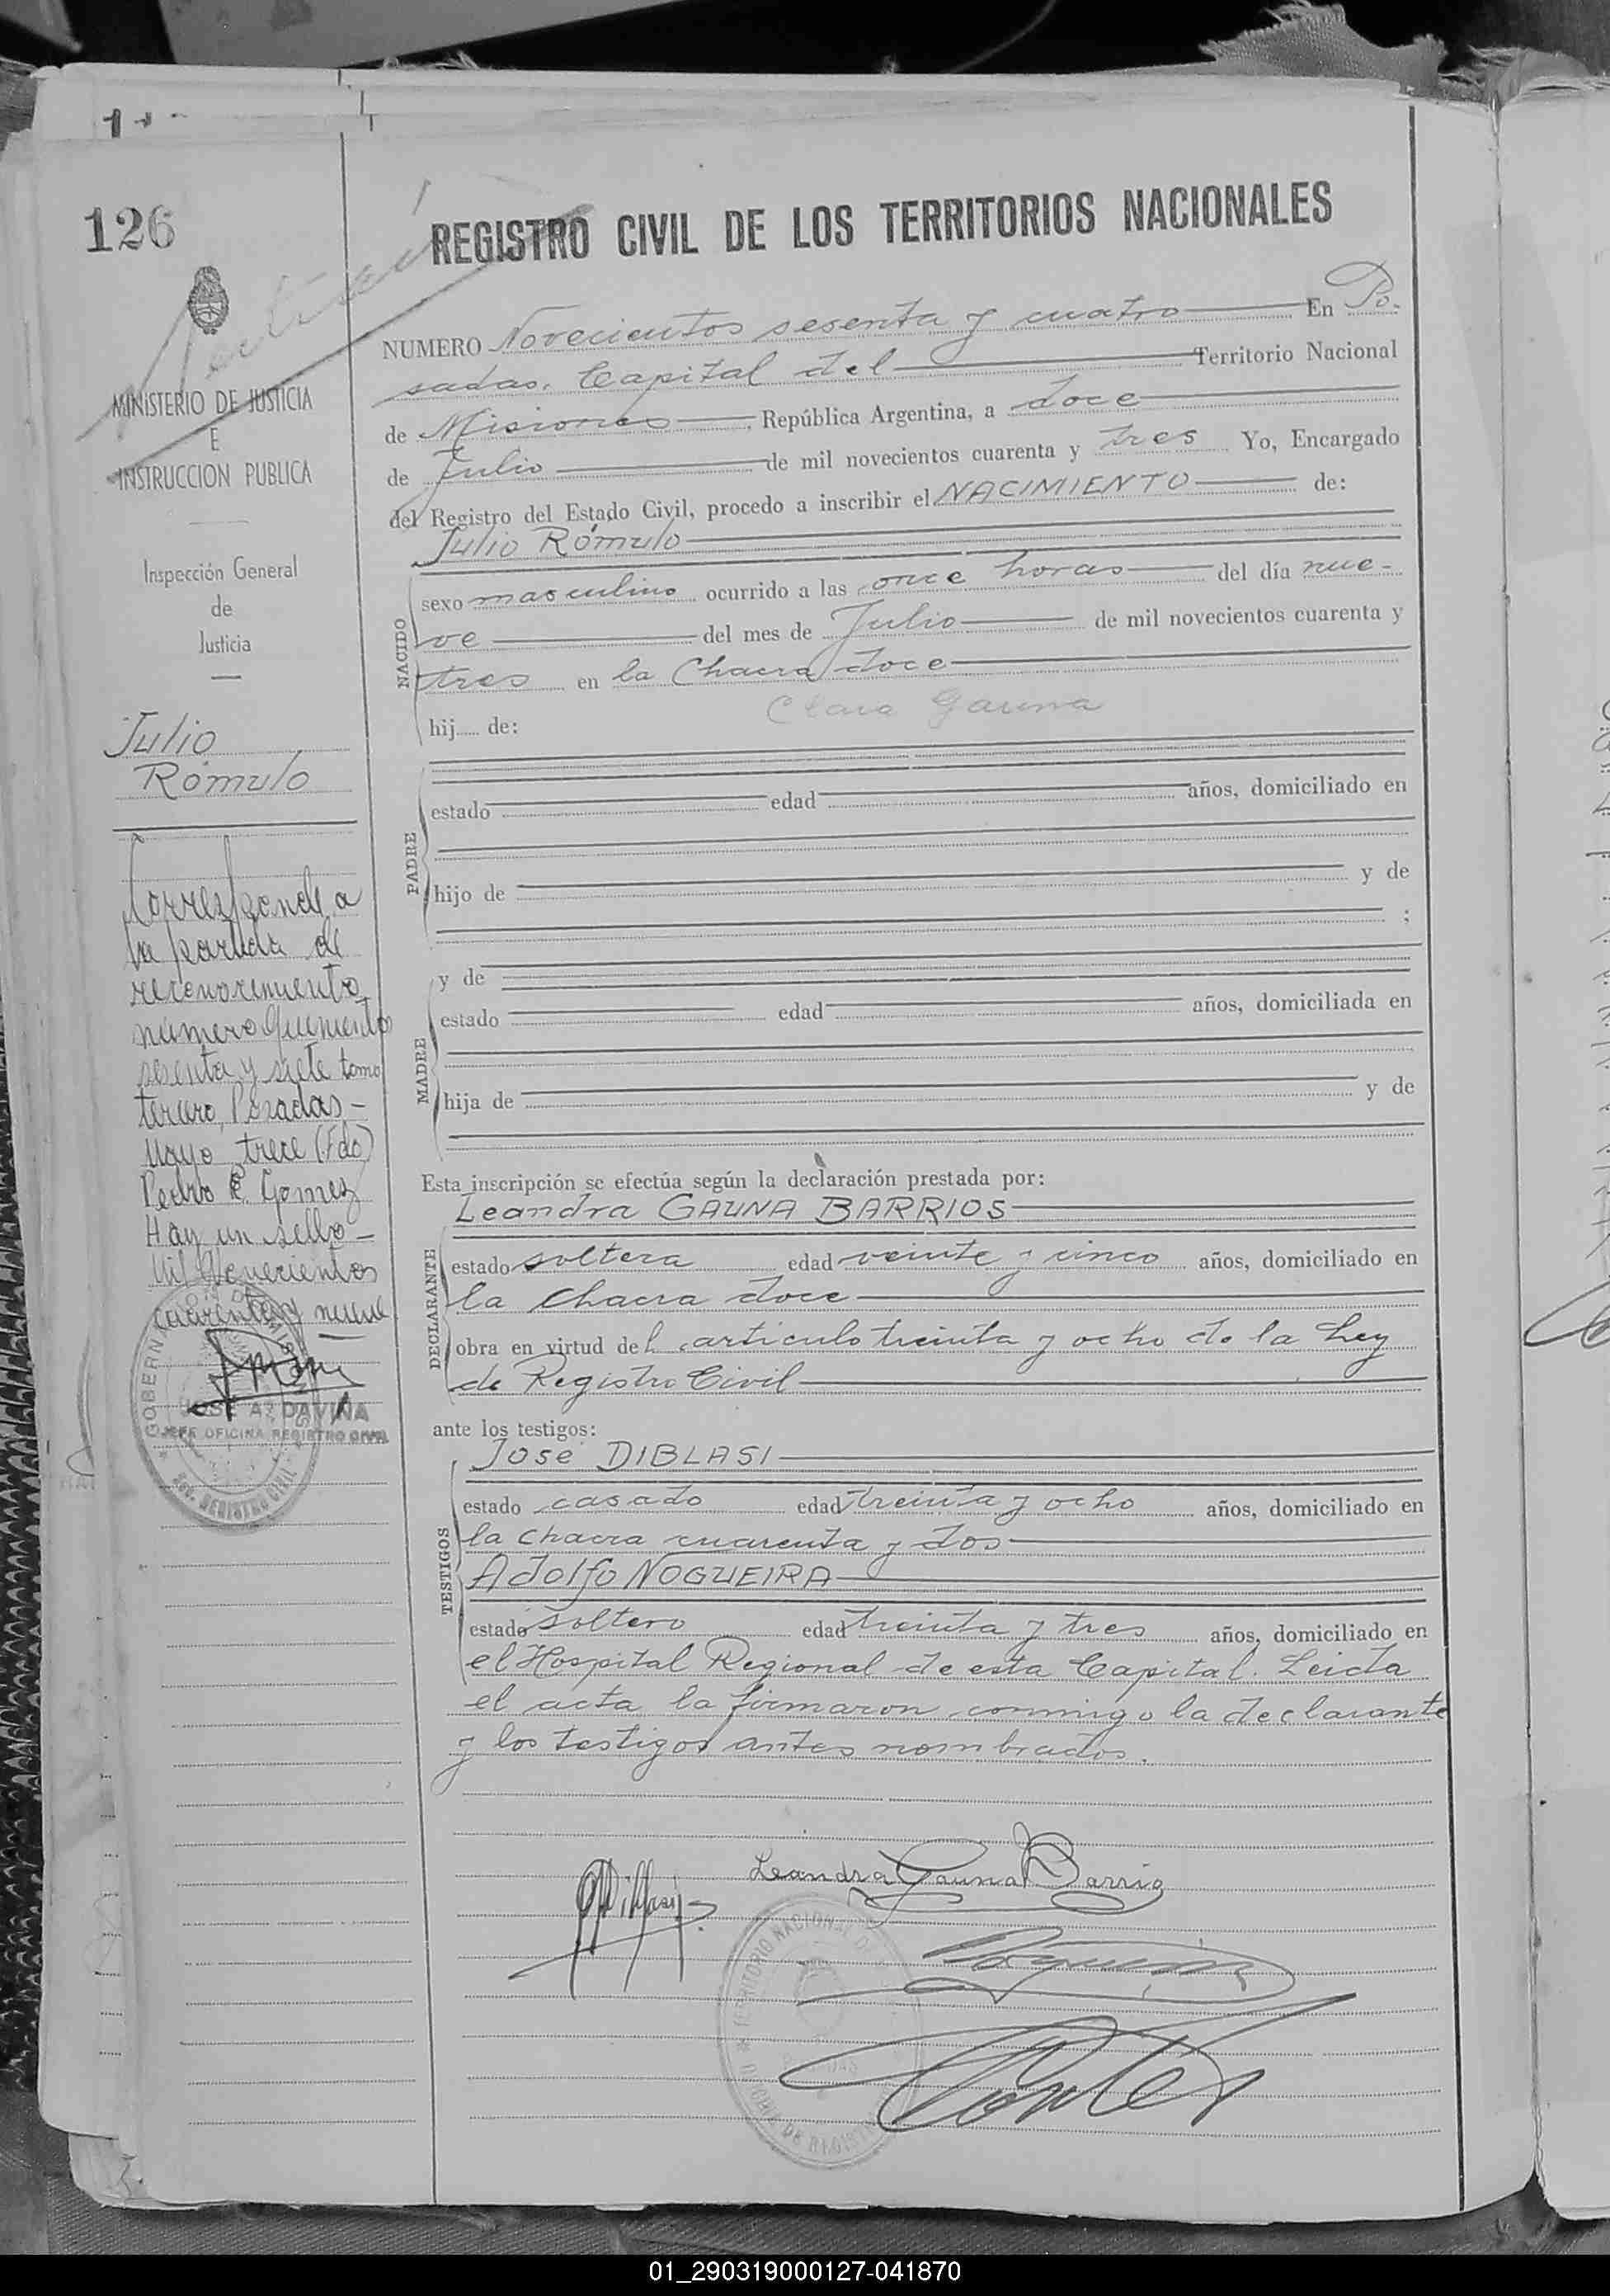 126
MINISTERIO DE JUSTICIA
E
INSTRUCCION PUBLICA
Inspección General
de
Justicia
Julio
Rómulo
Corresponde a
la partida de
reconocimiento
número quinientos
sesenta y siete tomo
tercero, Posadas -
Mayo trece (Fdo)
Pedro E. Gomez
Hay un sello -
Mil Novecientos
cuarenta y nueve
JOSE A. DAVIÑA
JEFE OFICINA REGISTRO CIVIL
REGISTRO CIVIL DE LOS TERRITORIOS NACIONALES
NUMERO Novecientos sesenta y cuatro En Po-
sadas. Capital del Territorio Nacional
de Misiones, República Argentina, a doce
de Julio de mil novecientos cuarenta y tres Yo, Encargado
del Registro del Estado Civil, procedo a inscribir el NACIMIENTO de:
Julio Rómulo
NACIDO
sexo masculino ocurrido a las once horas del día nue-
ve del mes de Julio de mil novecientos cuarenta y
tres en la Chacra doce
Clara Gauna
hij..... de:
PADRE
estado edad años, domiciliado en
hijo de y de
;
MADRE
y de
estado edad años, domiciliada en
hija de y de
Esta inscripción se efectúa según la declaración prestada por:
Leandra GAUNA BARRIOS
DECLARANTE
estado soltera edad veinte y cinco años, domiciliado en
la chacra doce
obra en virtud del artículo treinta y ocho de la Ley
de Registro Civil
ante los testigos:
José DIBLASI
TESTIGOS
estado casado edad treinta y ocho años, domiciliado en
la chacra cuarenta y dos
Adolfo NOGUEIRA
estado soltero edad treinta y tres años, domiciliado en
el Hospital Regional de esta Capital. Leida
el acta la firmaron conmigo la declarante
y los testigos antes nombrados.
Leandra Gauna Barrios
01_290319000127-041870